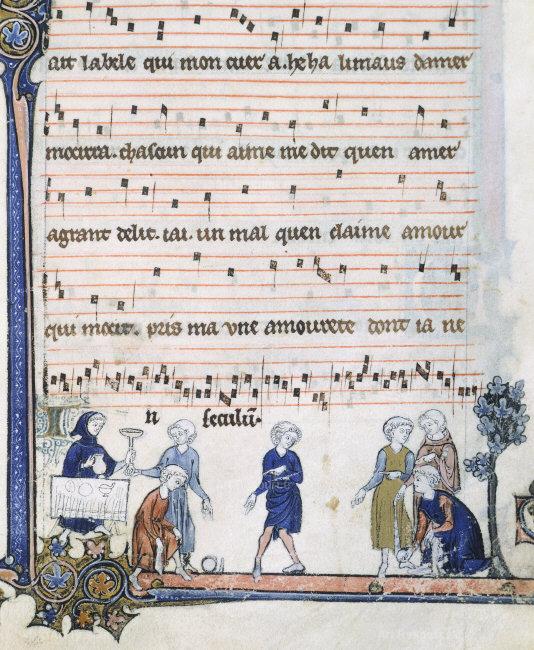 att labele qui mon cuer a. he ha limaus damer
mocirra. chascun qui aime me dit quen amer
agrant delit. iai. un mal quen claime amour
qui mocit. pris ma vne amourete dont ia ne
n seculū.